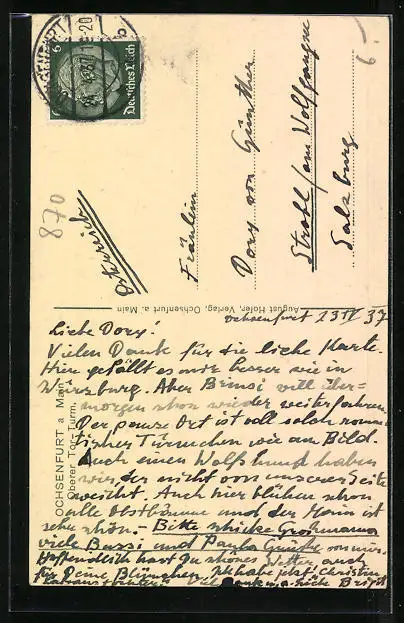 OCHSENFURT
24.4.37.19-20
6 6
Deutsches Reich
6.-
870
Österreich
Fräulein
Dory von Günther
Strobl / am Wolfgangsee
Salzburg
August Hofer, Verlag, Ochsenfurt a. Main
OCHSENFURT a. Main
Oberer Tor-Turm.
Ochsenfurt 23 IV 37
Liebe Dory!
Vielen Dank für die liebe Karte.
Hier gefällt es mir besser wie in
Würzburg. Aber will über=
morgen schon wieder weiterfahren.
Der ganze Ort ist voll solch roman
tischer Türmchen wie am Bild.
Auch einen Wolfshund haben
wir, der nicht von unserer Seite
weicht. Auch hier blühen schon
alle Obstbäume und der Main ist
sehr schön. - Bitte schicke Grossmama
viele Bussi und von mir.
Hoffendlich hast Du schönes Wetter auch
für Deine Blümchen. Ich habe jetzt